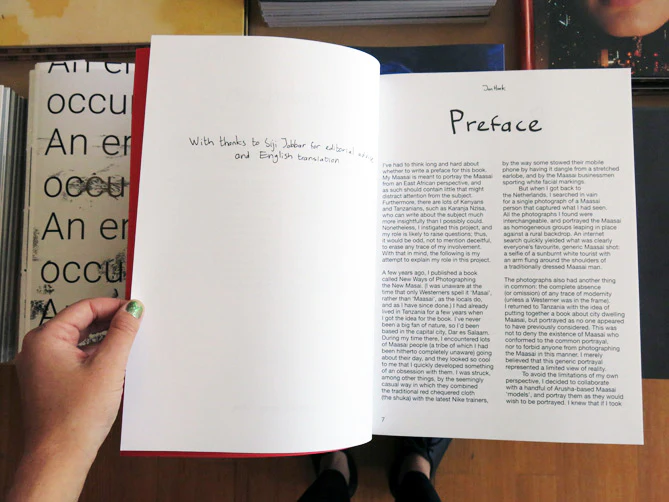 An er
occu
An en
occu
An en
occu
A
With thanks to Siji Jabbar for editorial advice
and English translation
Jan Hoek
Preface
I've had to think long and hard about
whether to write a preface for this book.
My Maasai is meant to portray the Maasai
from an East African perspective, and
as such should contain little that might
distract attention from the subject.
Furthermore, there are lots of Kenyans
and Tanzanians, such as Karanja Nzisa,
who can write about the subject much
more insightfully than I possibly could.
Nonetheless, I instigated this project, and
my role is likely to raise questions; thus,
it would be odd, not to mention deceitful,
to erase any trace of my involvement.
With that in mind, the following is my
attempt to explain my role in this project.
A few years ago, I published a book
called New Ways of Photographing
the New Masai. (I was unaware at the
time that only Westerners spell it 'Masai',
rather than 'Maasai', as the locals do,
and as I have since done.) I had already
lived in Tanzania for a few years when
I got the idea for the book. I've never
been a big fan of nature, so I'd been
based in the capital city, Dar es Salaam.
During my time there, I encountered lots
of Maasai people (a tribe of which I had
been hitherto completely unaware) going
about their day, and they looked so cool
to me that I quickly developed something
of an obsession with them. I was struck,
among other things, by the seemingly
casual way in which they combined
the traditional red chequered cloth
(the shuka) with the latest Nike trainers,
7
by the way some stowed their mobile
phone by having it dangle from a stretched
earlobe, and by the Maasai businessmen
sporting white facial markings.
But when I got back to
the Netherlands, I searched in vain
for a single photograph of a Maasai
person that captured what I had seen.
All the photographs I found were
interchangeable, and portrayed the Maasai
as homogeneous groups leaping in place
against a rural backdrop. An internet
search quickly yielded what was clearly
everyone's favourite, generic Maasai shot:
a selfie of a sunburnt white tourist with
an arm flung around the shoulders of
a traditionally dressed Maasai man.
The photographs also had another thing
in common: the complete absence
(or omission) of any trace of modernity
(unless a Westerner was in the frame).
I returned to Tanzania with the idea of
putting together a book about city dwelling
Maasai, but portrayed as no one appeared
to have previously considered. This was
not to deny the existence of Maasai who
conformed to the common portrayal,
nor to forbid anyone from photographing
the Maasai in this manner. I merely
believed that this generic portrayal
represented a limited view of reality.
To avoid the limitations of my own
perspective, I decided to collaborate
with a handful of Arusha-based Maasai
'models', and portray them as they would
wish to be portrayed. I knew that if I took